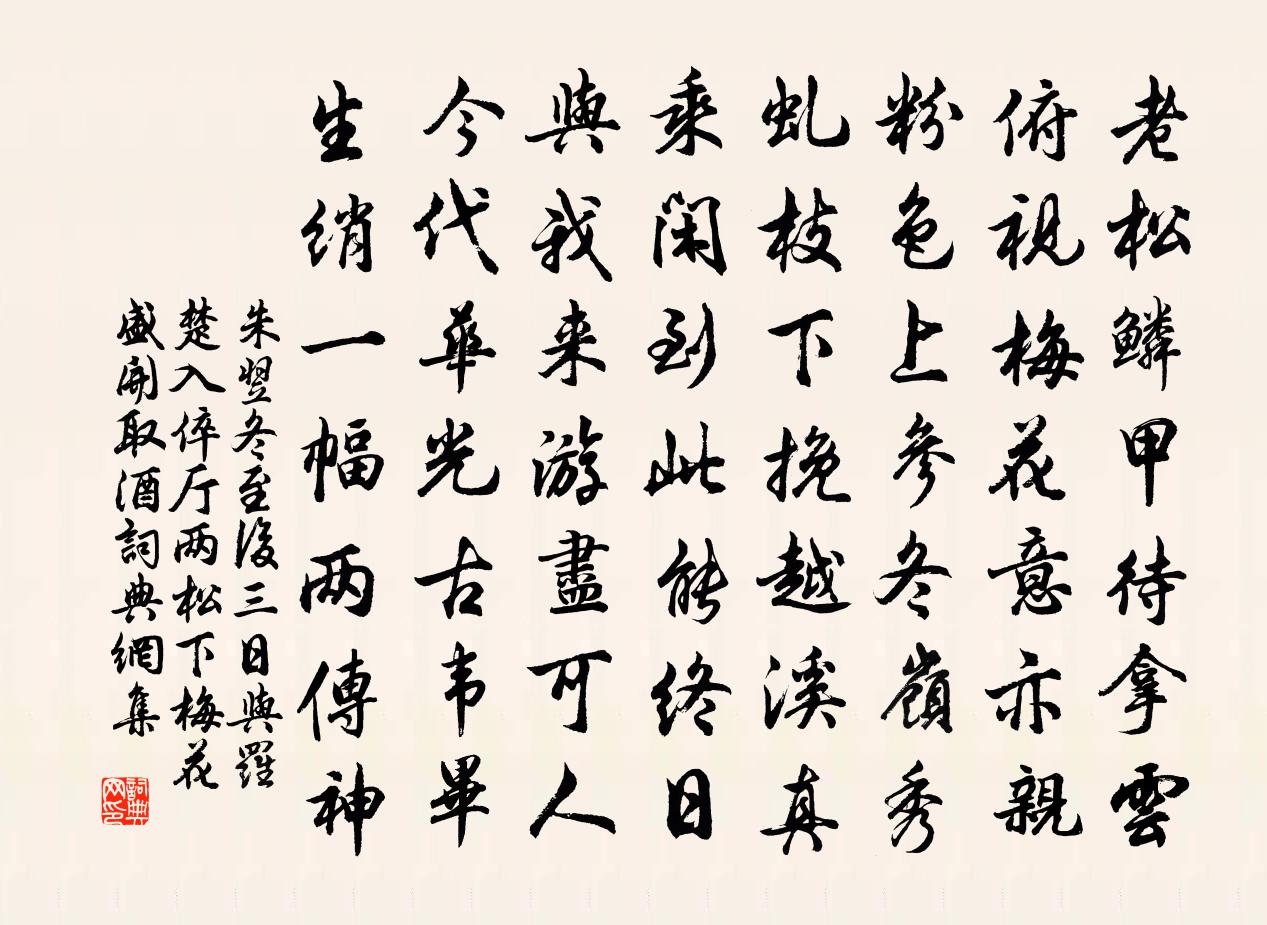 老松鱗甲待拿雲
俯視梅花意亦親
粉色上參冬嶺秀
虬枝下挽越溪真
乘閑到此能終日
與我来游盡可人
今代華光古韦畢
生綃一幅两傳神
朱翌冬至後三日與羅
楚入倅厅两松下梅花
盛開取酒詞典網集
詞典网印